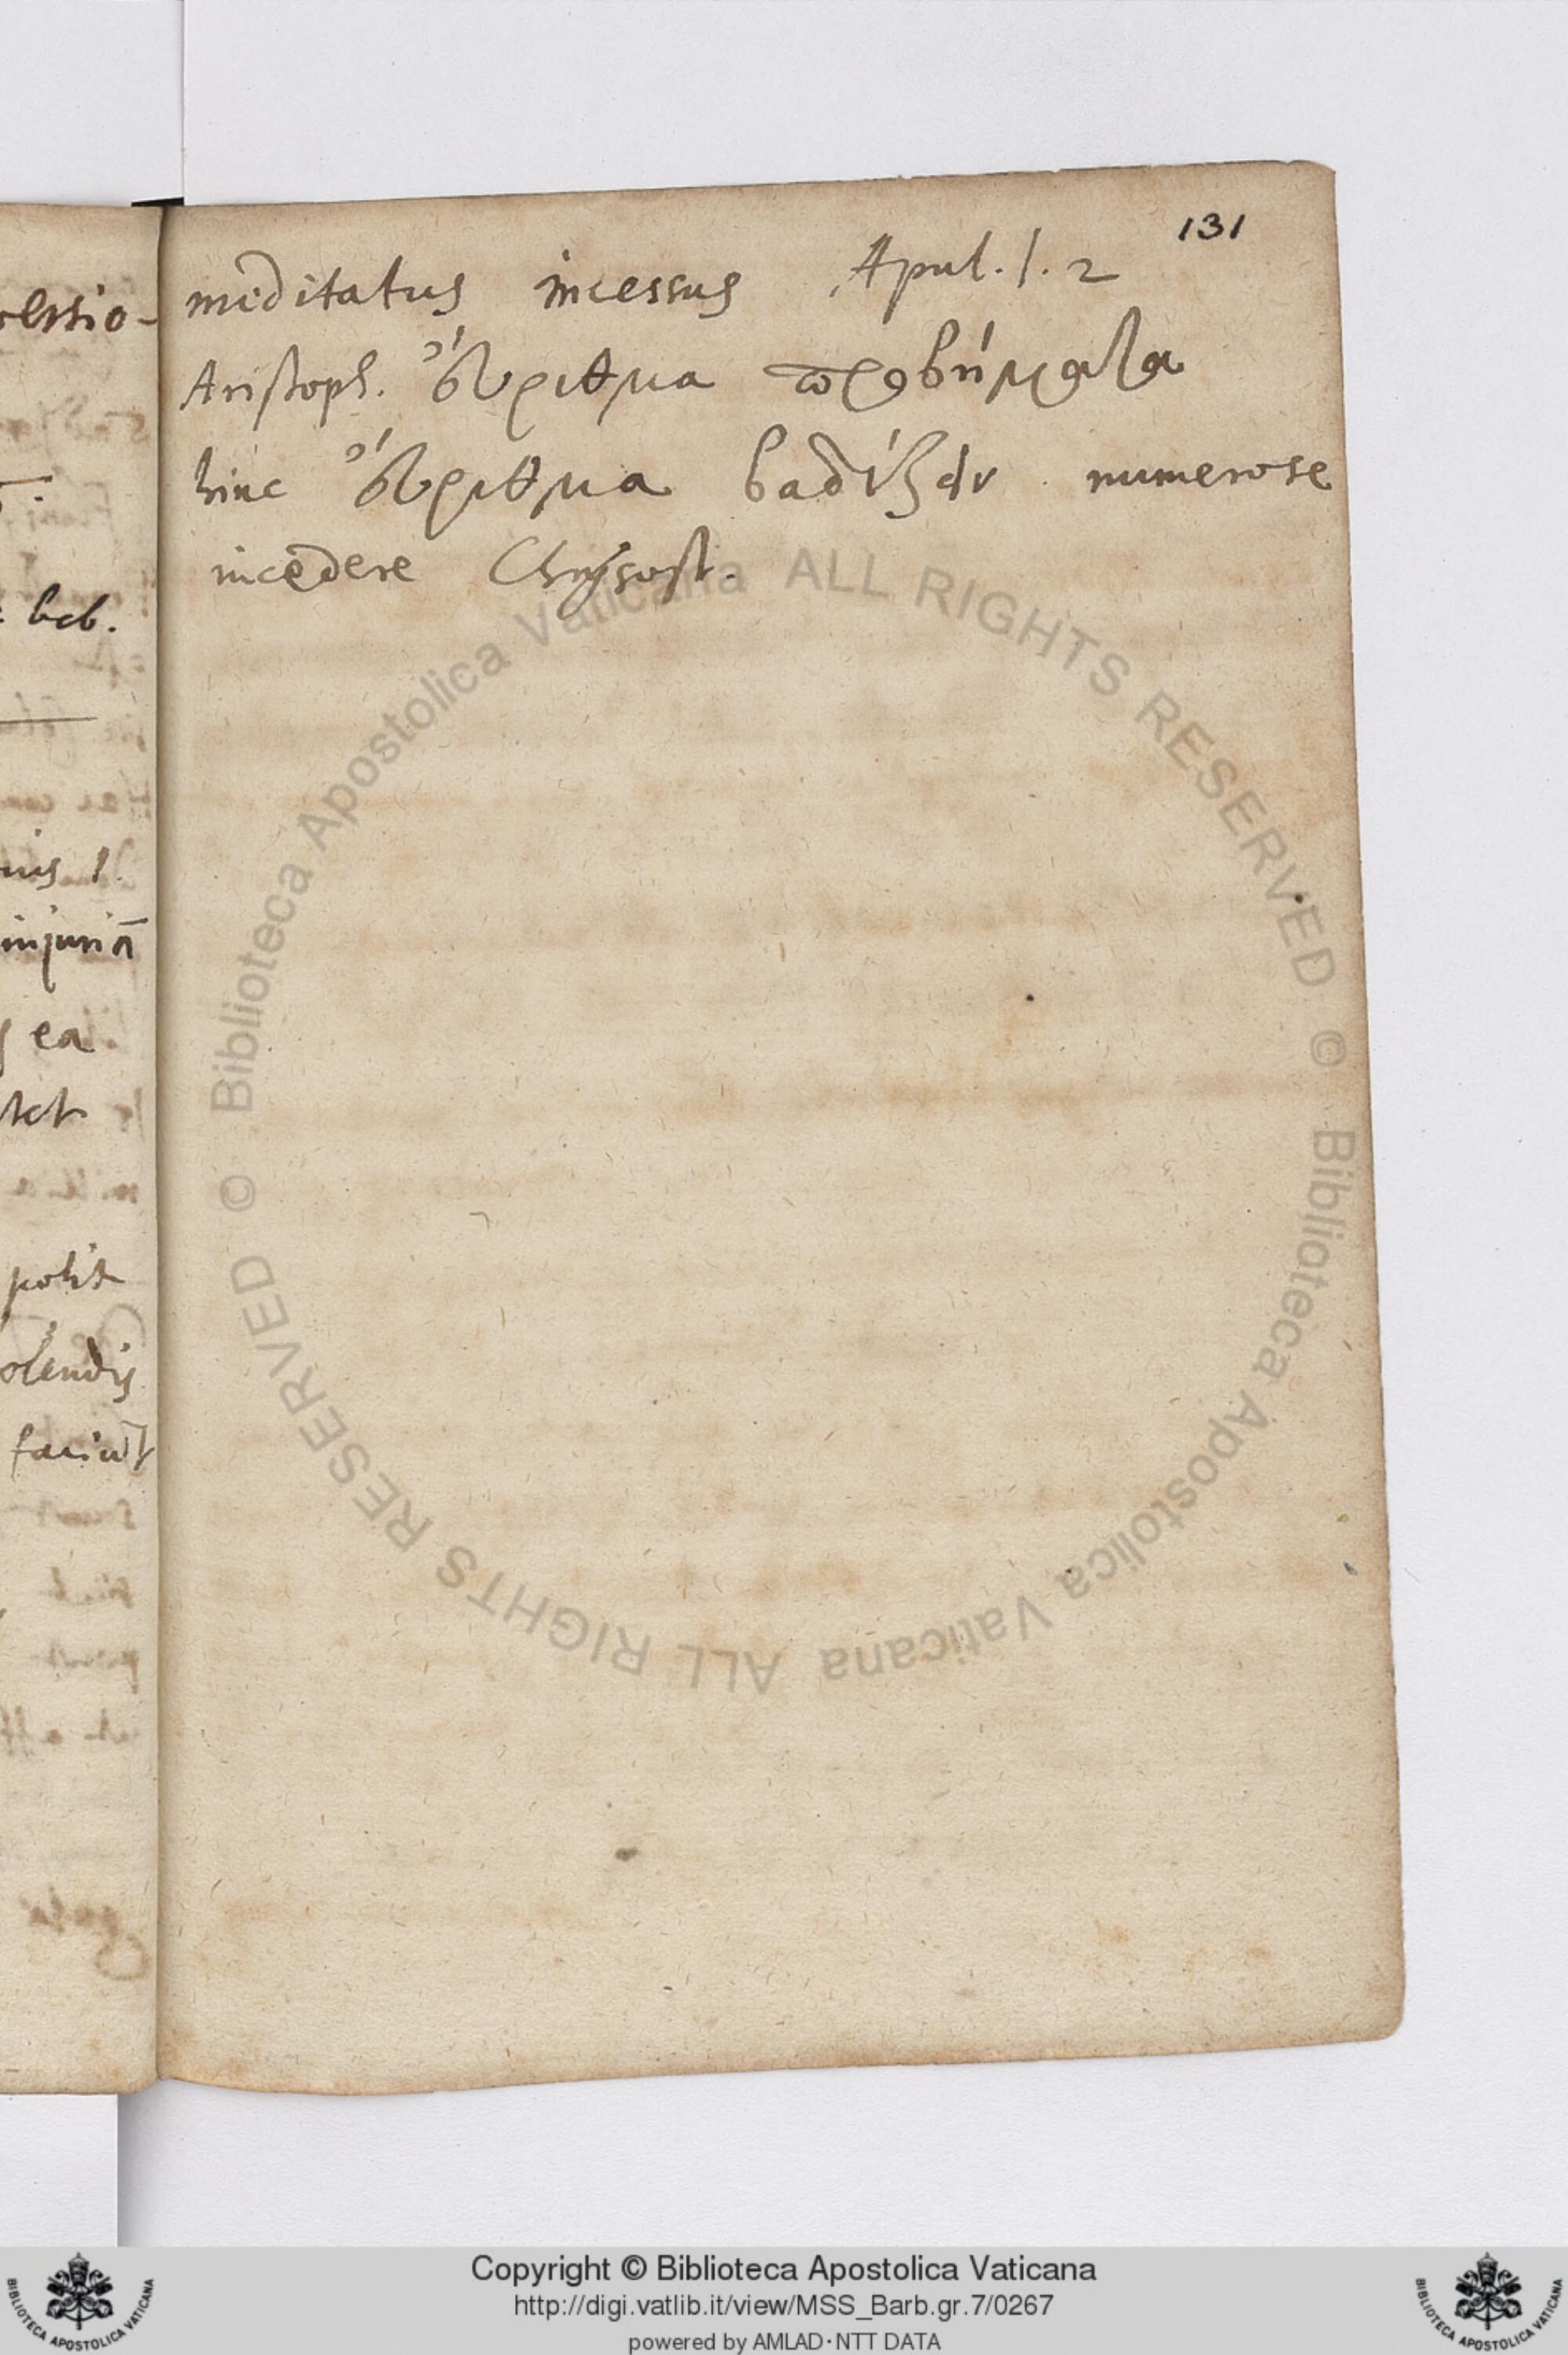 131
meditatus incessus Apul. l. 2
Aristoph. εὔριθμα προβήματα
hinc εὔριθμα βαδίζειν numerose
incedere Chrysost.
olssio-
bcb.
nis l.
injuriā
ea
tet
polit
olendis
faciūt
© Biblioteca Apostolica Vaticana ALL RIGHTS RESERVED
© Biblioteca Apostolica Vaticana ALL RIGHTS RESERVED
Copyright © Biblioteca Apostolica Vaticana
http://digi.vatlib.it/view/MSS_Barb.gr.7/0267
powered by AMLAD·NTT DATA
BIBLIOTECA APOSTOLICA VATICANA
BIBLIOTECA APOSTOLICA VATICANA